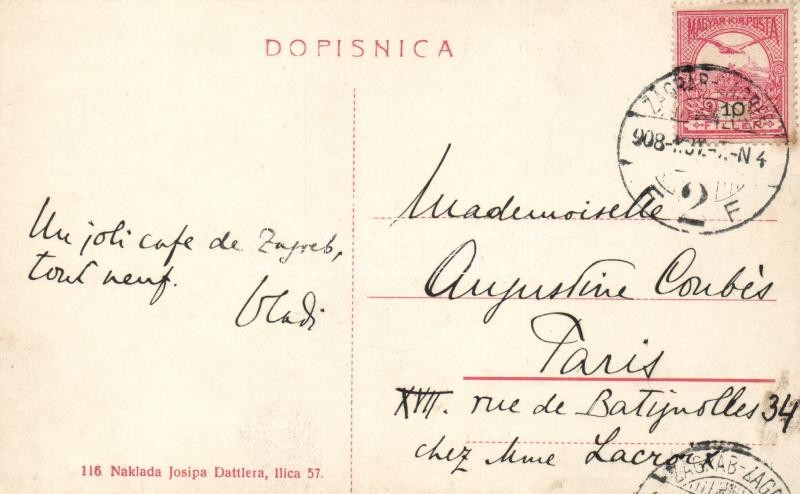 DOPISNICA
MAGYAR KIR. POSTA
10
FILLÉR
ZÁGRÁB-ZAGREB
908
N4
2
F
Un joli cafe de Zagreb,
tout neuf.
Vladi
Mademoiselle
Augustine Combès
Paris
XVII. rue de Batignolles 34
chez Mme Lacroix
116. Naklada Josipa Dattlera, Ilica 57.
ZÁGRÁB-ZAGR